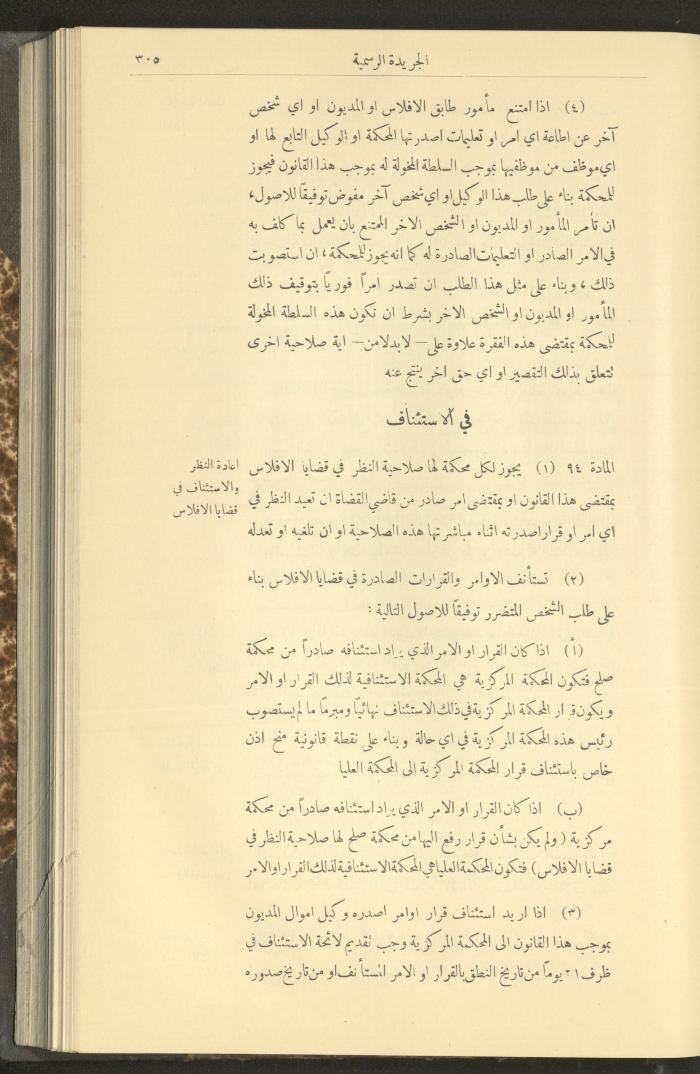 الجريدة الرسمية
٣٠٥
(٤) اذا امتنع مأمور طابق الافلاس او المديون او اي شخص
آخر عن اطاعة اي امر او تعليمات اصدرتها المحكمة او الوكيل التابع لها او
اي موظف من موظفيها بموجب السلطة المخولة له بموجب هذا القانون فيجوز
للمحكمة بناء على طلب هذا الوكيل او اي شخص آخر مفوض توفيقاً للاصول،
ان تأمر المأمور او المديون او الشخص الاخر الممتنع بان يعمل بما كلف به
في الامر الصادر او التعليمات الصادرة له كما انه يجوز للمحكمة، ان استصوبت
ذلك، وبناء على مثل هذا الطلب ان تصدر امراً فورياً بتوقيف ذلك
المأمور او المديون او الشخص الاخر بشرط ان تكون هذه السلطة المخولة
للمحكمة بمقتضى هذه الفقرة علاوة على — لا بدلا من — اية صلاحية اخرى
تتعلق بذلك التقصير او اي حق اخر ينتج عنه
في الاستئناف
المادة ٩٤ (١) يجوز لكل محكمة لها صلاحية النظر في قضايا الافلاس
بمقتضى هذا القانون او بمقتضى امر صادر من قاضي القضاة ان تعيد النظر في
اي امر او قرار اصدرته اثناء مباشرتها هذه الصلاحية او ان تلغيه او تعدله
اعادة النظر
والاستئناف في
قضايا الافلاس
(٢) تستأنف الاوامر والقرارات الصادرة في قضايا الافلاس بناء
على طلب الشخص المتضرر توفيقاً للاصول التالية :
(أ) اذا كان القرار او الامر الذي يراد استئنافه صادراً من محكمة
صلح فتكون المحكمة المركزية هي المحكمة الاستئنافية لذلك القرار او الامر
ويكون قرار المحكمة المركزية في ذلك الاستئناف نهائياً ومبرمًا ما لم يستصوب
رئيس هذه المحكمة المركزية في اي حالة وبناء على نقطة قانونية منح اذن
خاص باستئناف قرار المحكمة المركزية الى المحكمة العليا
(ب) اذا كان القرار او الامر الذي يراد استئنافه صادراً من محكمة
مركزية (ولم يكن بشأن قرار رفع اليها من محكمة صلح لها صلاحية النظر في
قضايا الافلاس) فتكون المحكمة العليا هي المحكمة الاستئنافية لذلك القرار او الامر
(٣) اذا اريد استئناف قرار اوامر اصدره وكيل اموال المديون
بموجب هذا القانون الى المحكمة المركزية وجب تقديم لائحة الاستئناف في
ظرف ٢١ يوماً من تاريخ النطق بالقرار او الامر المستأنف او من تاريخ صدوره